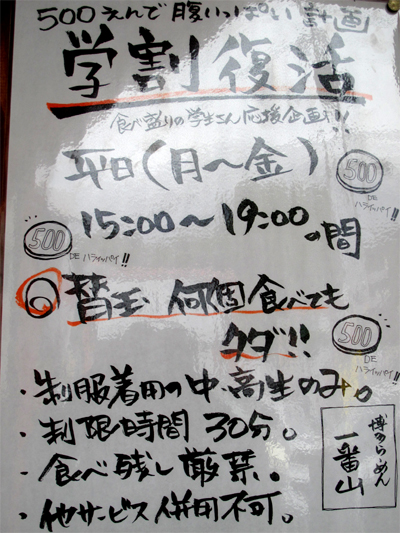 500えんで腹いっぱい計画
学割復活
食べ盛りの学生さん応援企画!!
平日(月〜金)
15:00〜19:00の間
500
DE ハライッパイ!!
500
DE ハライッパイ!!
替玉 何個食べても
タダ!!
500
DE ハライッパイ!!
・制服着用の中・高生のみ。
・制限時間30分。
・食べ残し厳禁。
・他サービス併用不可。
博多らーめん
一番山